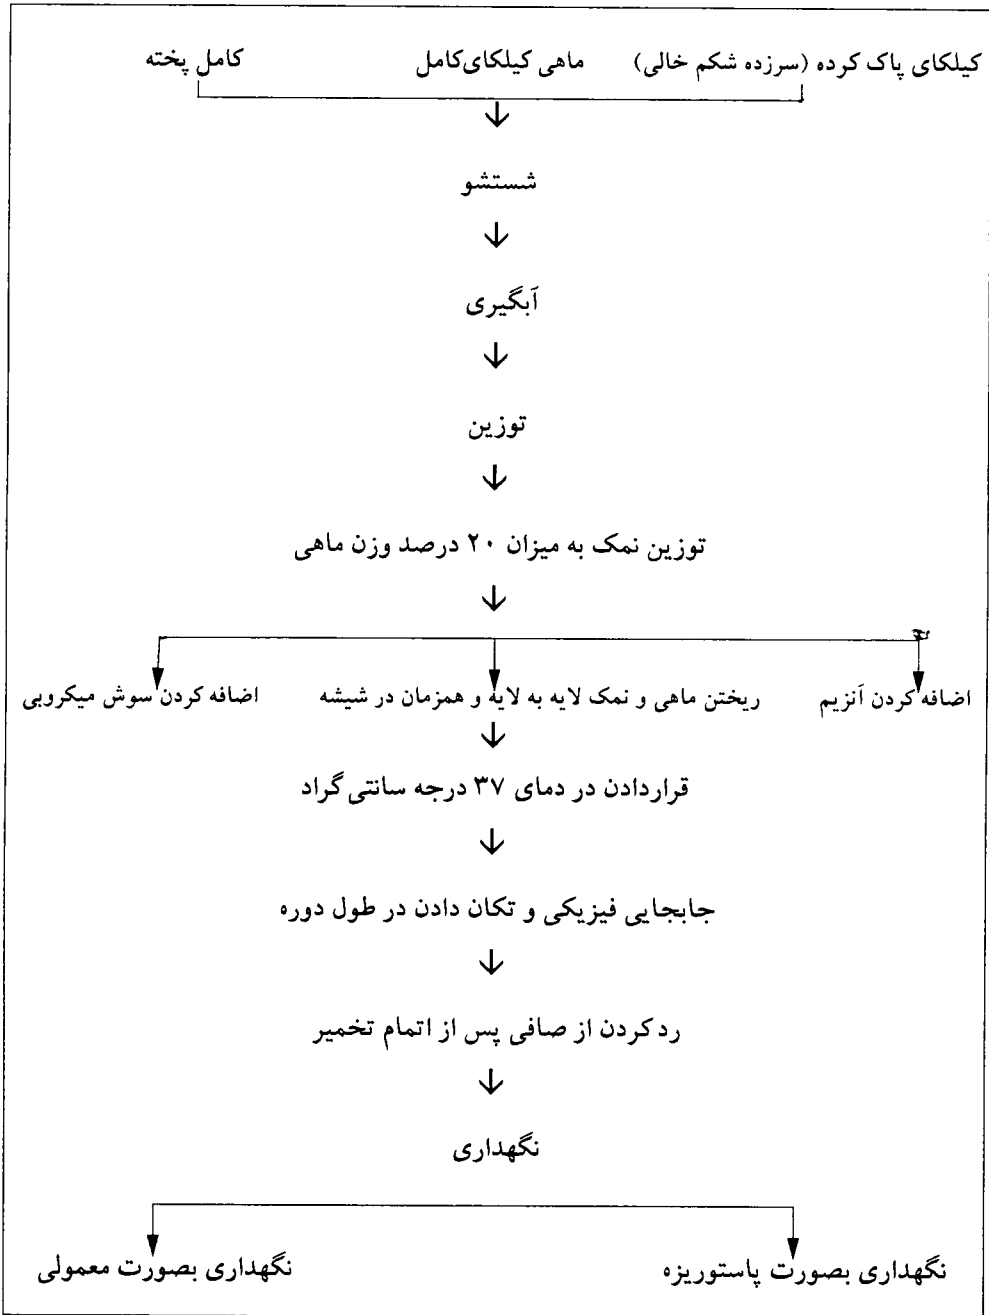 کیلکای پاک کرده (سرزده شکم خالی) ماهی کیلکای کامل کامل پخته
شستشو
آبگیری
توزین
توزین نمک به میزان ۲۰ درصد وزن ماهی
اضافه کردن آنزیم ریختن ماهی و نمک لایه به لایه و همزمان در شیشه اضافه کردن سوش میکروبی
قراردادن در دمای ۳۷ درجه سانتی گراد
جابجایی فیزیکی و تکان دادن در طول دوره
رد کردن از صافی پس از اتمام تخمیر
نگهداری
نگهداری بصورت پاستوریزه نگهداری بصورت معمولی